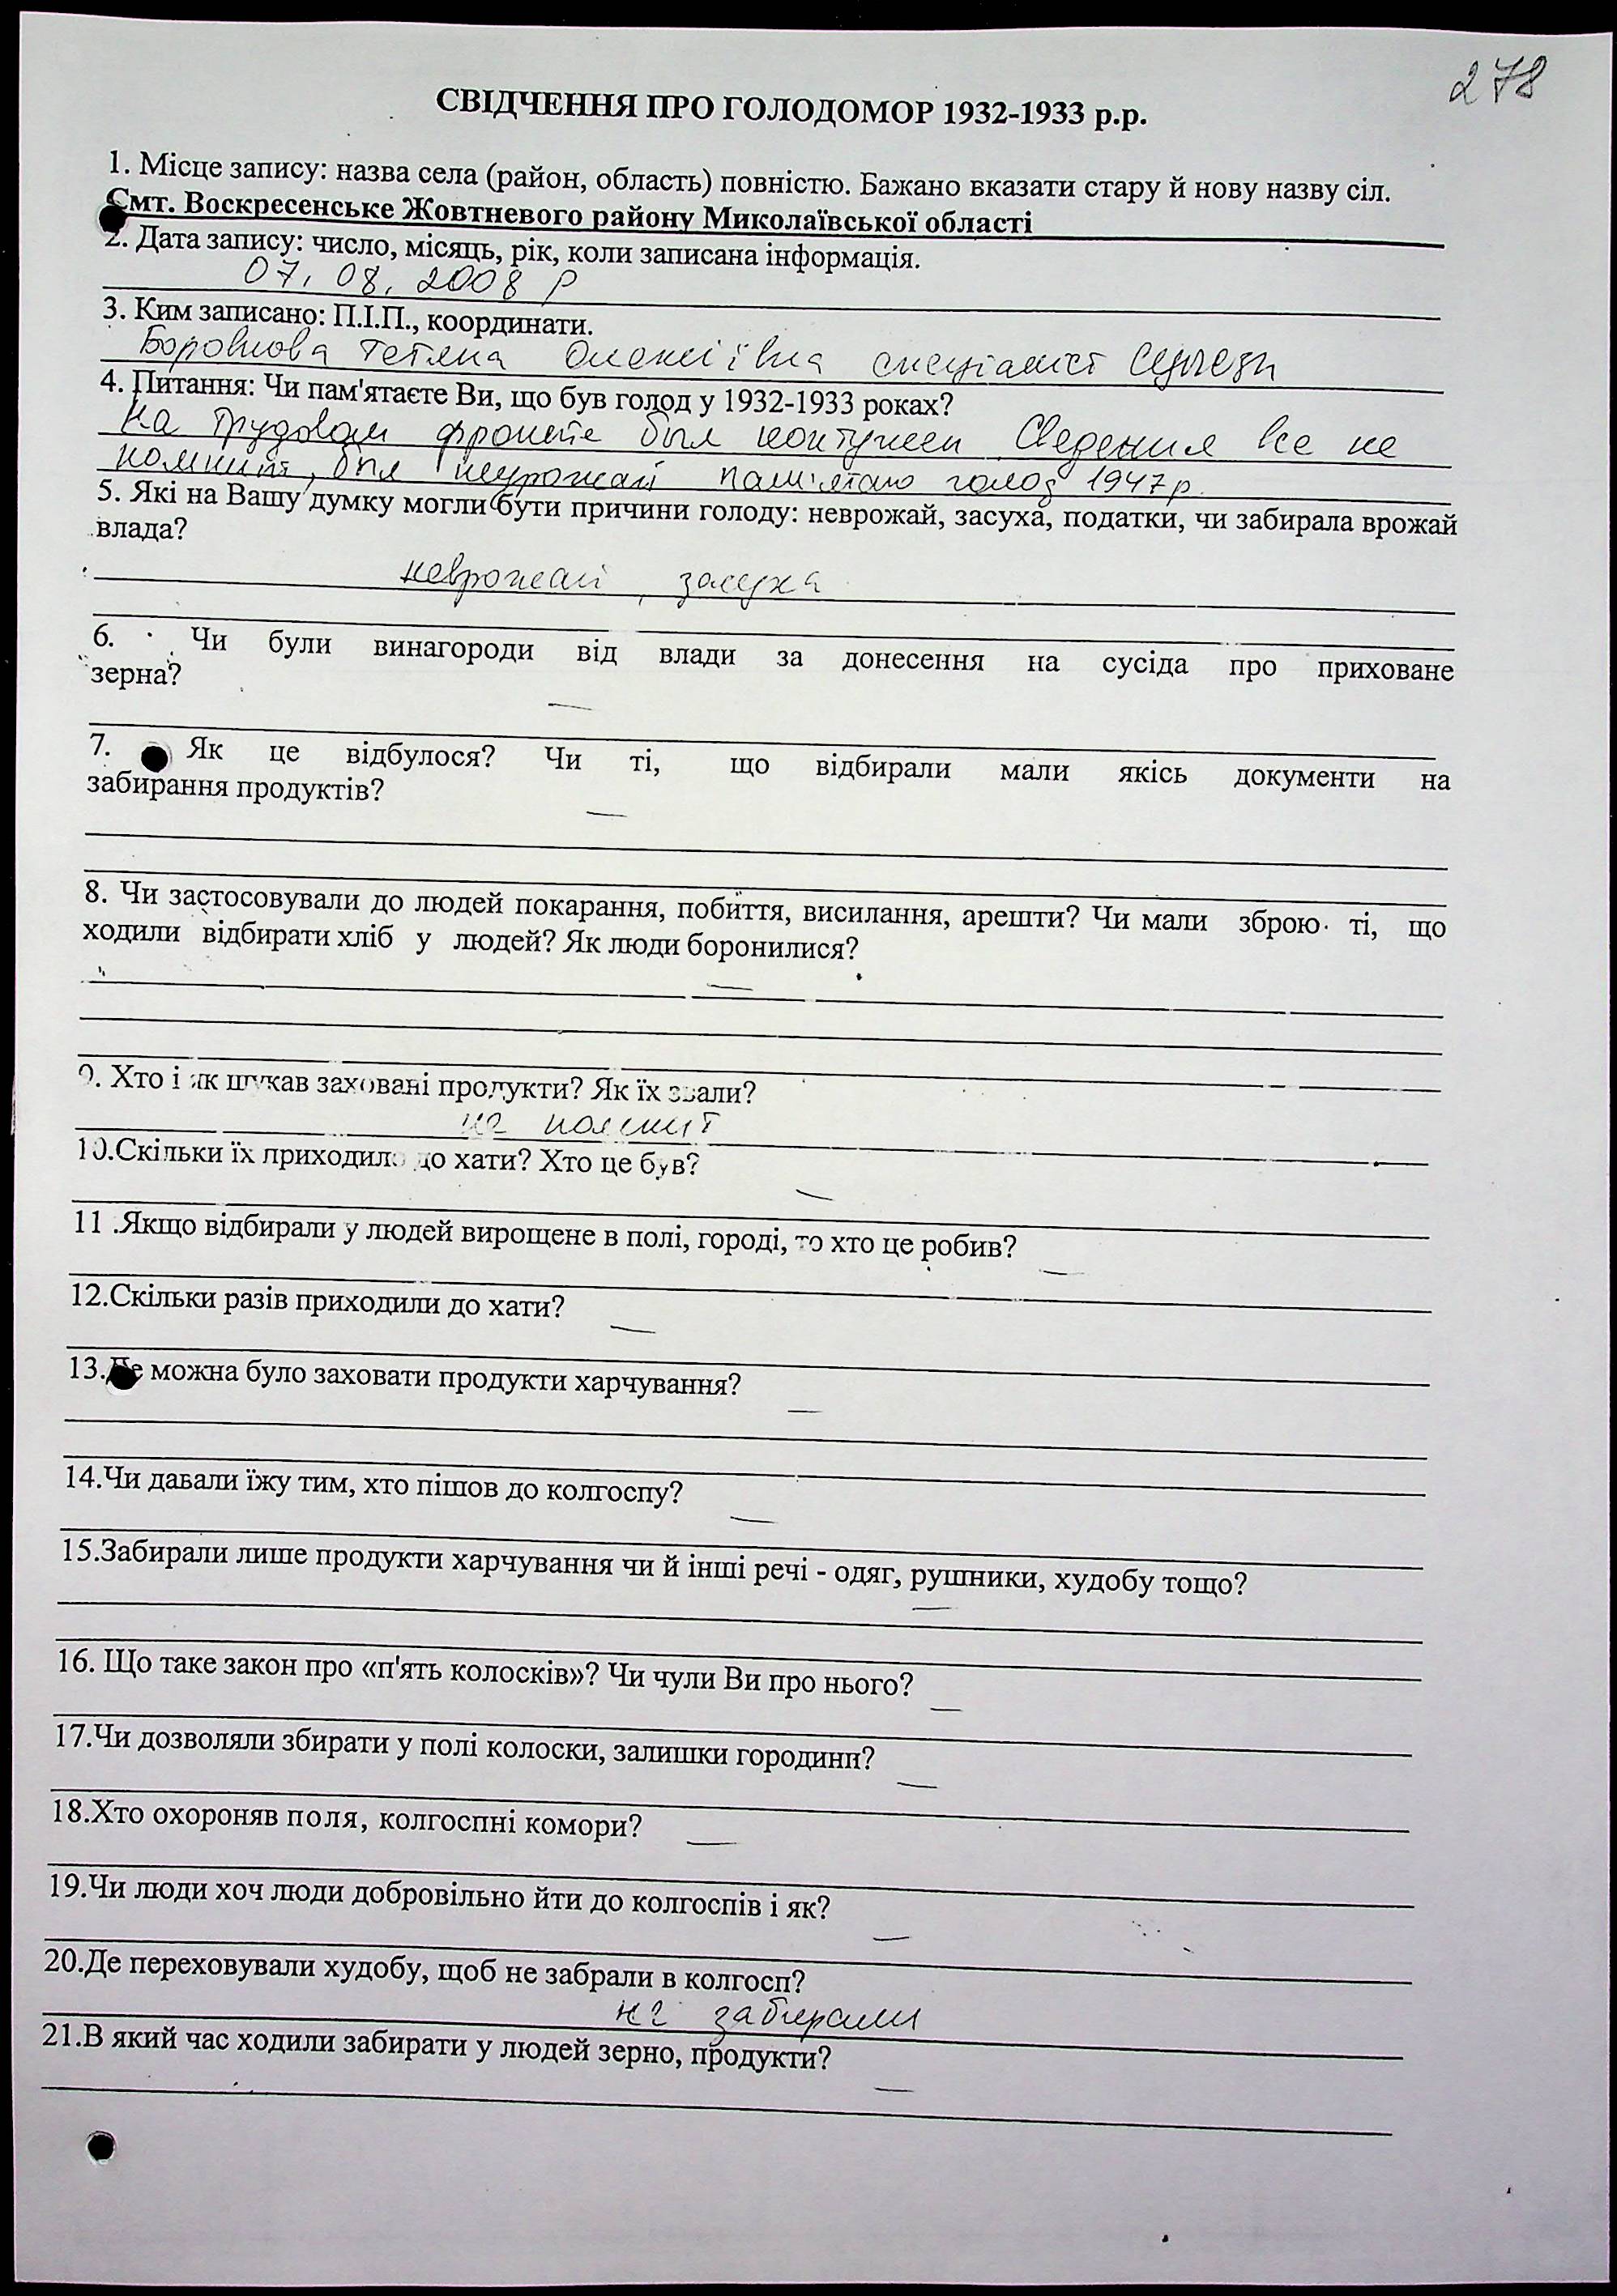 278
СВІДЧЕННЯ ПРО ГОЛОДОМОР 1932-1933 р.р.
1. Місце запису: назва села (район, область) повністю. Бажано вказати стару й нову назву сіл.
Смт. Воскресенське Жовтневого району Миколаївської області
2. Дата запису: число, місяць, рік, коли записана інформація.
07. 08. 2008 р
3. Ким записано: П.І.П., координати.
Боровкова Тетяна Олексіївна спеціаліст
4. Питання: Чи пам'ятаєте Ви, що був голод у 1932-1933 роках?
На трудовом фронте был контужен. Сведения все не
помнит, был неурожай пам'ятаю голод 1947р.
5. Які на Вашу думку могли бути причини голоду: неврожай, засуха, податки, чи забирала врожай
влада?
неврожай, засуха
6. Чи були винагороди від влади за донесення на сусіда про приховане
зерна?
—
7. Як це відбулося? Чи ті, що відбирали мали якісь документи на
забирання продуктів?
—
8. Чи застосовували до людей покарання, побиття, висилання, арешти? Чи мали зброю ті, що
ходили відбирати хліб у людей? Як люди боронилися?
—
9. Хто і як шукав заховані продукти? Як їх звали?
не помнит
10.Скільки їх приходило до хати? Хто це був?
—
11 .Якщо відбирали у людей вирощене в полі, городі, то хто це робив?
—
12.Скільки разів приходили до хати?
—
13.Де можна було заховати продукти харчування?
—
14.Чи давали їжу тим, хто пішов до колгоспу?
—
15.Забирали лише продукти харчування чи й інші речі - одяг, рушники, худобу тощо?
—
16. Що таке закон про «п'ять колосків»? Чи чули Ви про нього?
—
17.Чи дозволяли збирати у полі колоски, залишки городини?
—
18.Хто охороняв поля, колгоспні комори?
—
19.Чи люди хоч люди добровільно йти до колгоспів і як?
—
20.Де переховували худобу, щоб не забрали в колгосп?
не забирали
21.В який час ходили забирати у людей зерно, продукти?
—